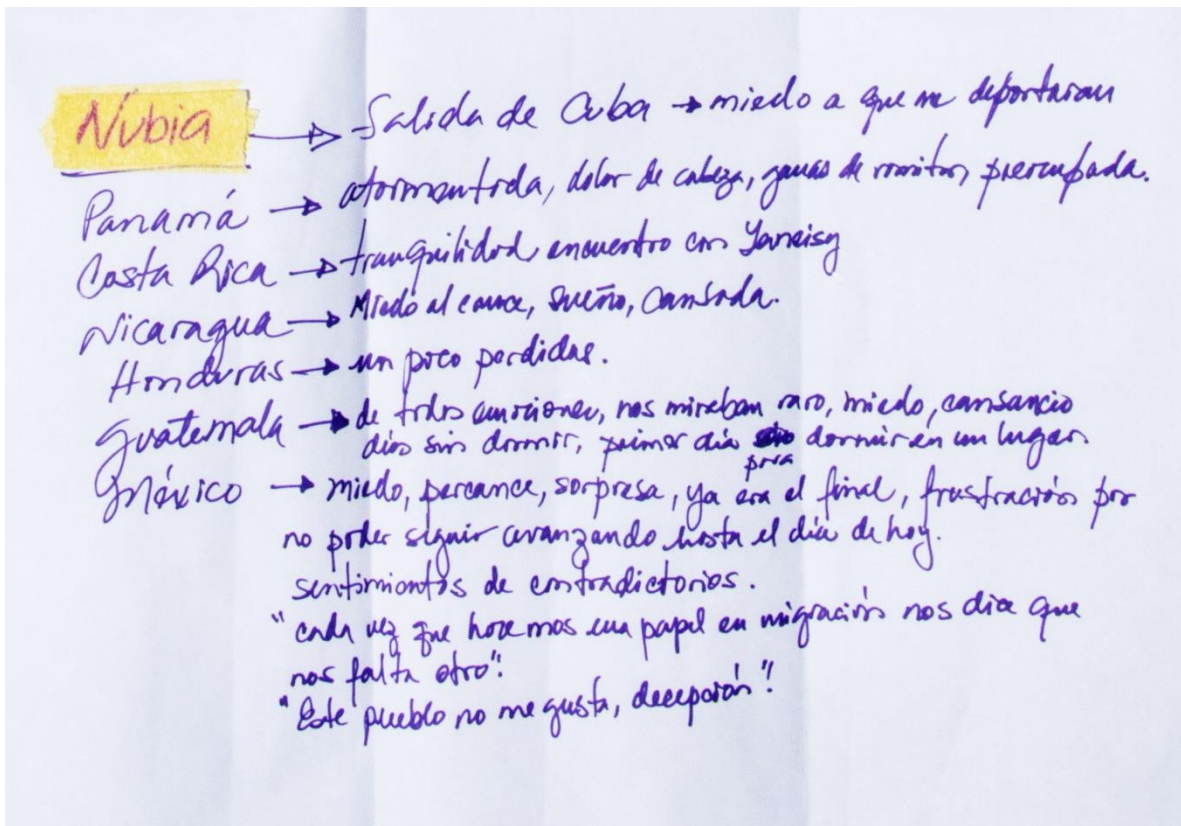 Núbia → Salida de Cuba → miedo a que me deportaran
Panamá → atormentada, dolor de cabeza, ganas de vomitar, preocupada.
Costa Rica → tranquilidad encuentro con Yaneisy
Nicaragua → Miedo al cruce, sueño, cansada.
Honduras → un poco perdidas.
Guatemala → de todas emociones, nos miraban raro, miedo, cansancio
días sin dormir, primer día para dormir en un lugar.
México → miedo, percance, sorpresa, ya era el final, frustración por
no poder seguir avanzando hasta el día de hoy.
sentimientos de contradictorios.
"cada vez que hacemos un papel en migración nos dice que
nos falta otro".
"Este pueblo no me gusta, decepción".